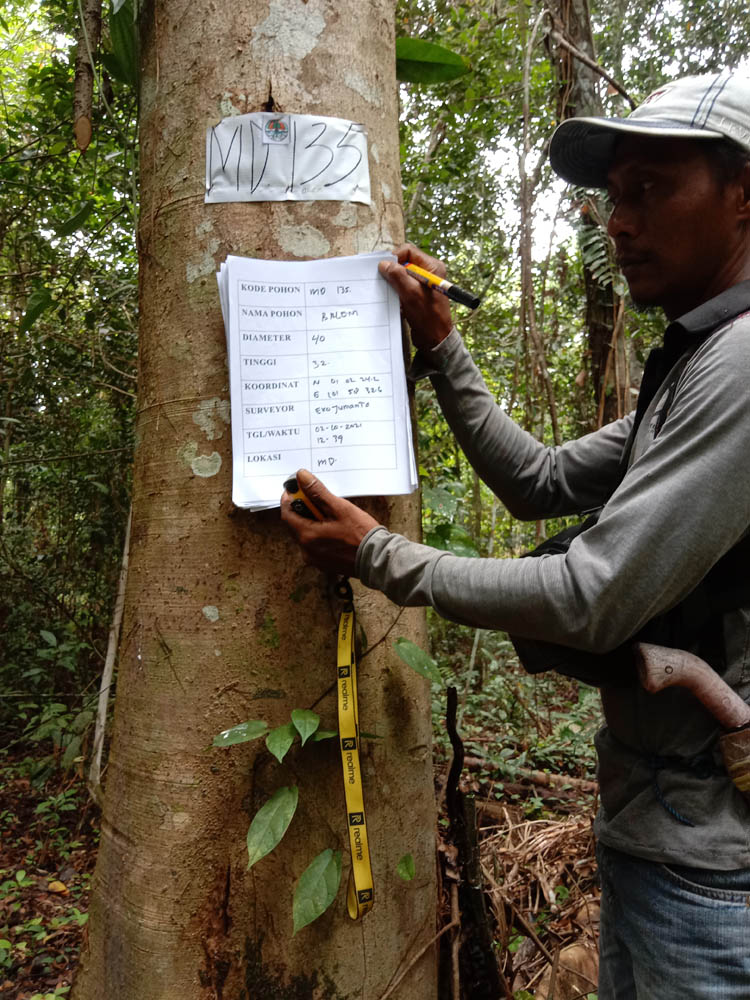 MD 135
KODE POHON MD 135.
NAMA POHON BALOM
DIAMETER 40
TINGGI 32.
KOORDINAT N 01 02 24.2
E 101 58 32.6
SURVEYOR Eko Jumanto
TGL/WAKTU 02-10-2021
12.39
LOKASI MD.
realme
realme
realme
realme